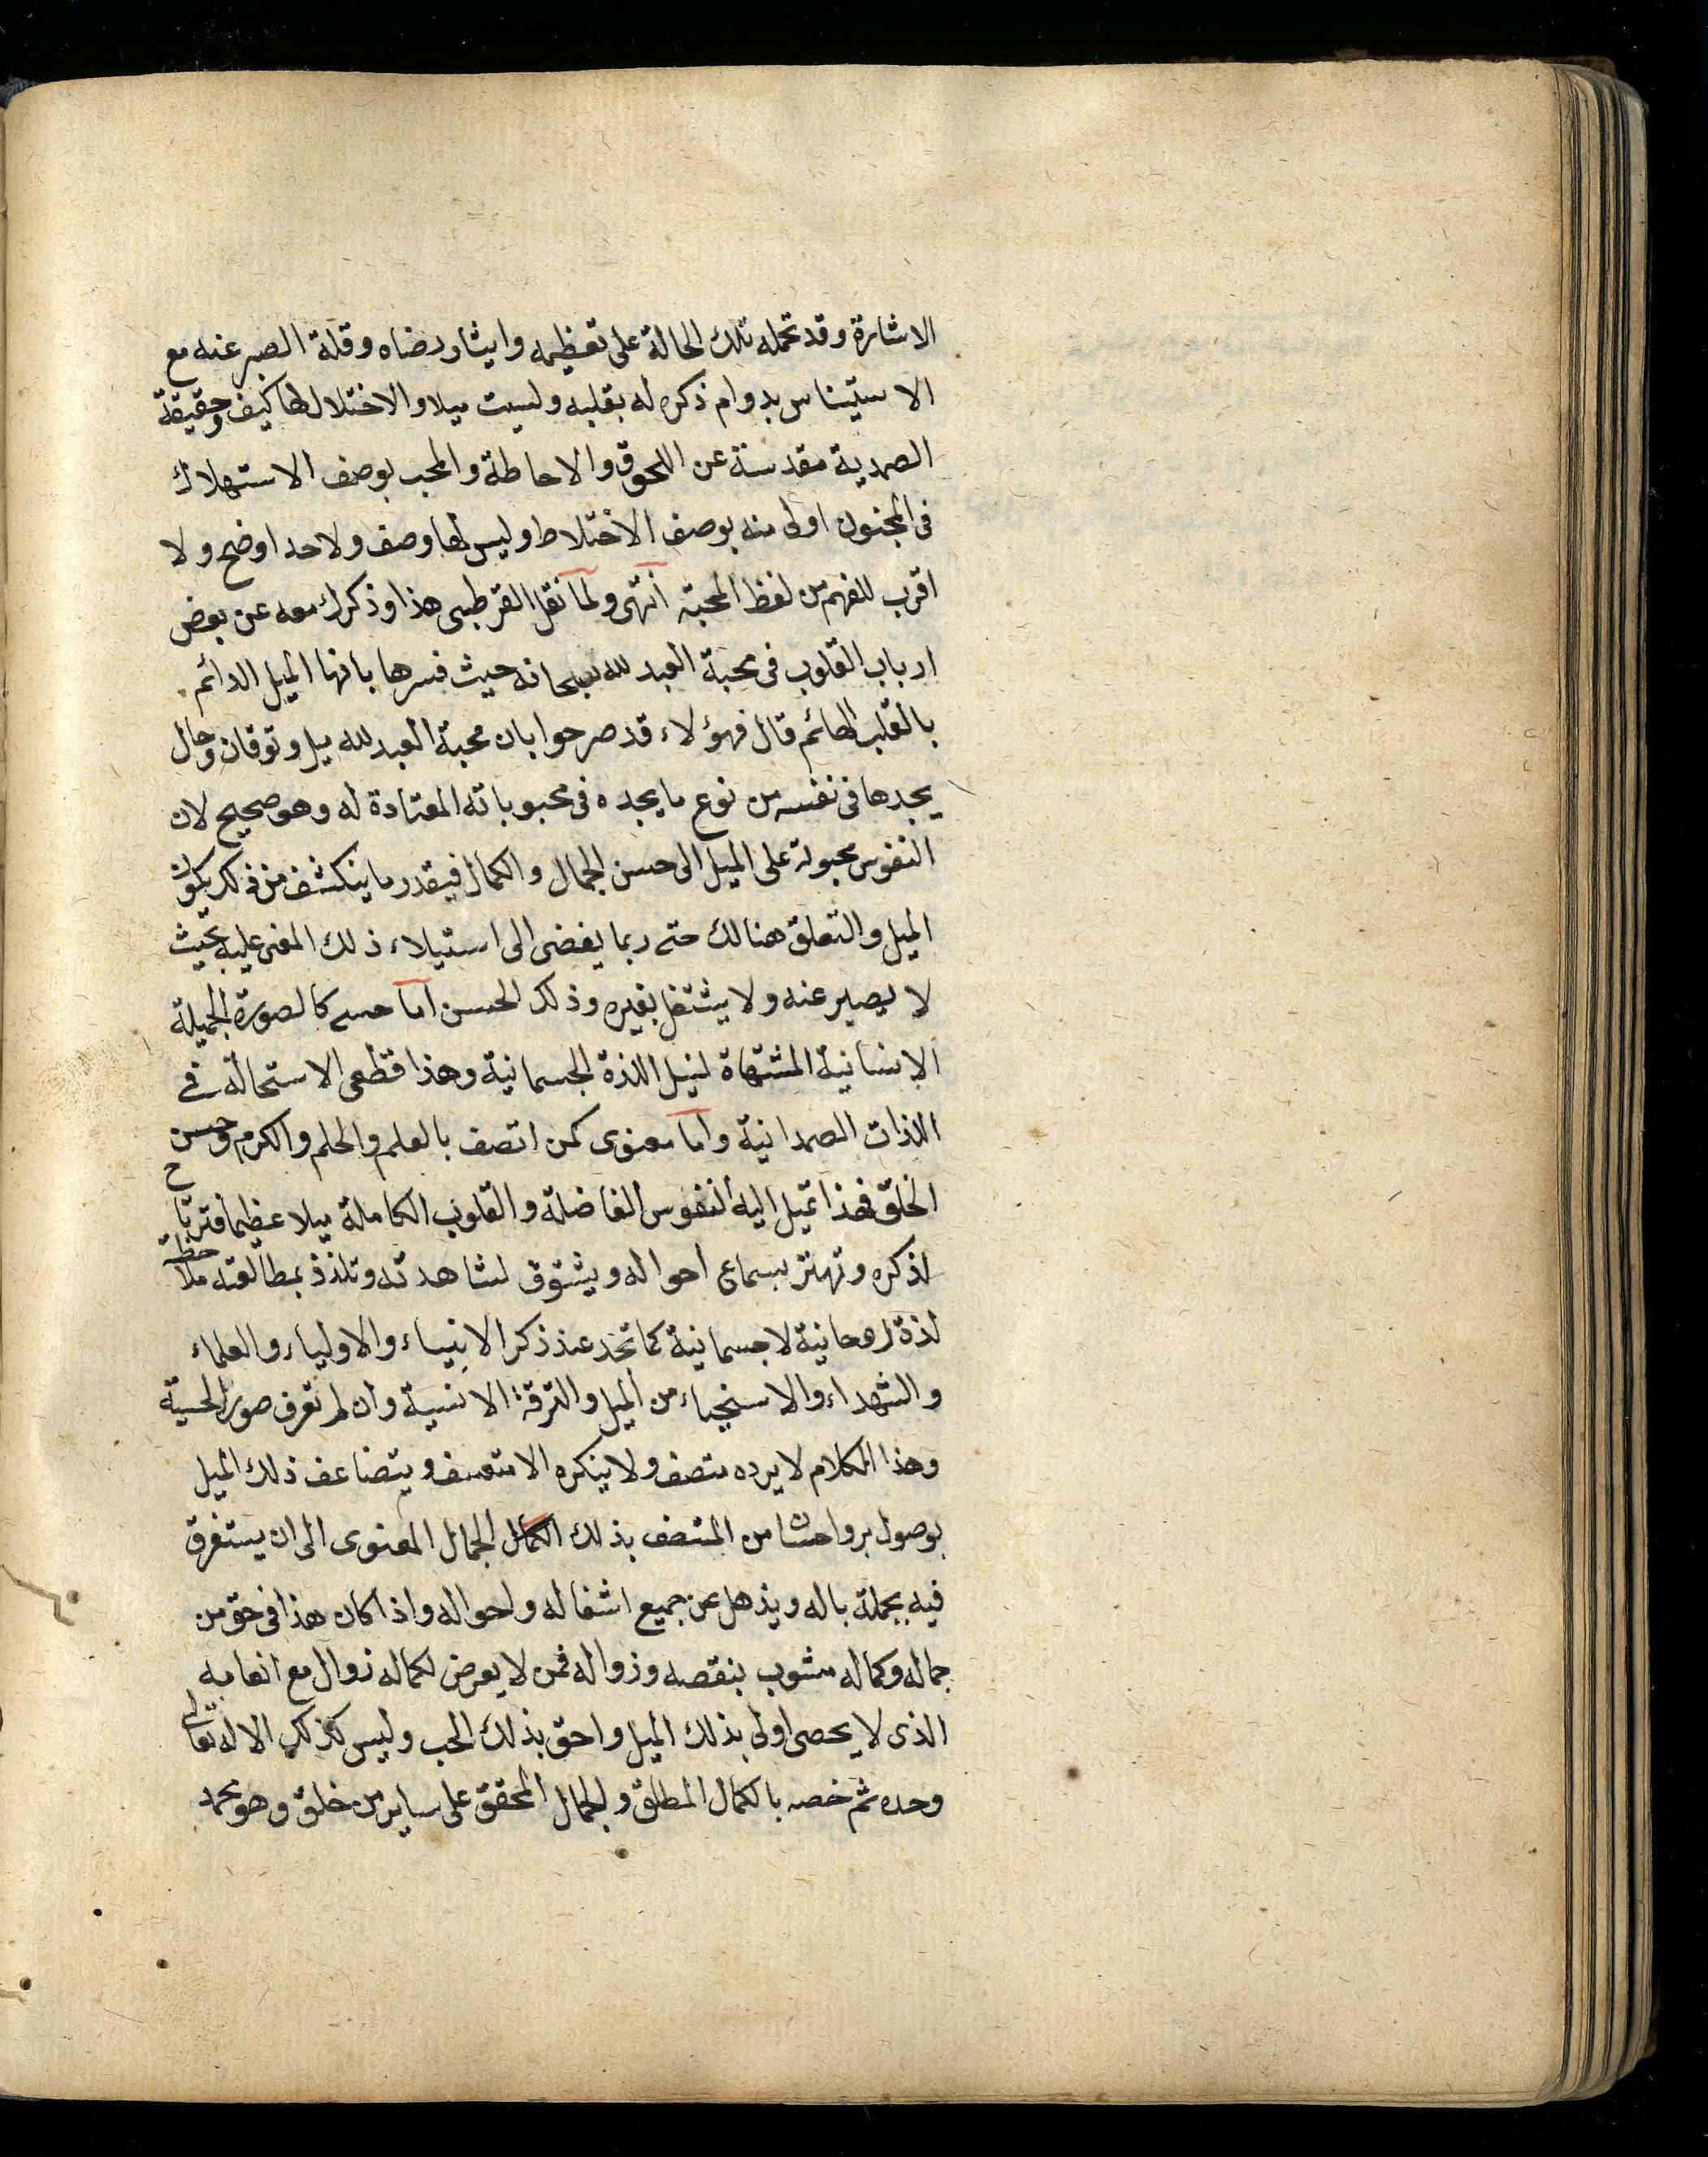 الاشارة وقد تحمله تلك الحالة على تعظيمه وايثار رضاه وقلة الصبر عنه مع
الاستيناس بدوام ذكره له بقلبه وليست ميلا والاختلال لها كيف وحقيقة
الصمدية مقدسة عن اللحوق والاحاطة والمحب بوصف الاستهلاك
فى المجنون اولى منه بوصف الاختلاط وليس لها وصف ولاحد اوضح ولا
اقرب للفهم من لفظ المحبة انتهى ولما نقل القرطبى هذا وذكر معه عن بعض
ارباب القلوب فى محبة العبد لله سبحانه حيث فسرها بانها الميل الدائم
بالقلب الهائم قال فهؤلاء قد صرحوا بان محبة العبد لله ميل وتوقان وحال
يجدها فى نفسه من نوع ما يجده فى محبوباته المعتادة له وهو صحيح لان
النفوس مجبولة على الميل الى حسن الجمال والكمال فبقدر ما ينكشف من ذلك يكون
الميل والتعلق هنالك حتى ربما يفضى الى استيلاء ذلك المعنى عليه بحيث
لا يصبر عنه ولا يشتغل بغيره وذلك الحسن اما حسى كالصورة الجميلة
الانسانية المشتهاة لنيل اللذة الجسمانية وهذا قطعى الاستحالة فى
الذات الصمدانية واما معنوى كمن اتصف بالعلم والحلم والكرم وحسن
الخلق فهذا تميل اليه النفوس الفاضلة والقلوب الكاملة ميلا عظيما فترتاح
لذكره وتهتز بسماع احواله ويشتوق لمشاهدته وتلذذ بمطالعته ملاحظة
لذة روحانية لا جسمانية كما تجد عند ذكر الانبياء والاولياء والعلماء
والشهداء والاسخياء من الميل والترقة الانسية وان لم تعرف صورة الحسية
وهذا الكلام لا يرده منصف ولا ينكره الا متعسف ويتضاعف ذلك الميل
بوصول بر واحسان من المتصف بذلك الكمال الجمال المعنوى الى ان يستغرق
فيه بجملة باله ويذهل عن جميع اشغاله واحواله واذا كان هذا فى حق من
جماله وكماله مشوب بنقصه وزواله فمن لا يعرض لكماله زوال مع انعامه
الذى لا يحصى اولى بذلك الميل واحق بذلك الحب وليس كذلك الا له تعالى
وحده ثم خصه بالكمال المطلق والجمال المحقق على ساير من خلق وهو محمد